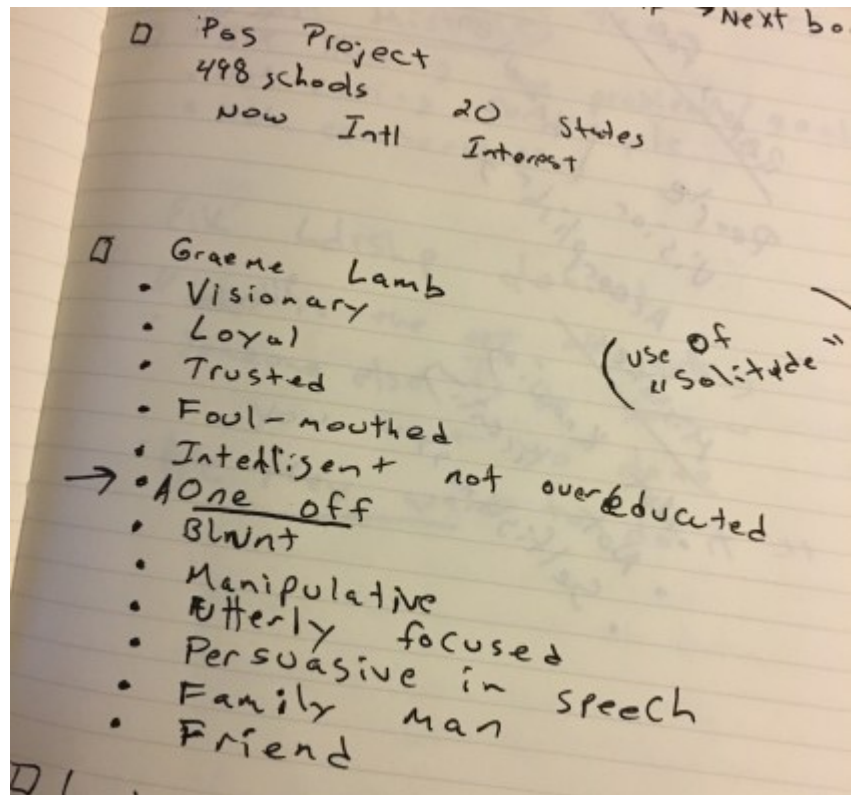 → Next bo
□ Pos Project
498 schools 20 States
Now Intl Interest
□ Graeme Lamb
• Visionary
• Loyal
(use of
"Solitude"
• Trusted
• Foul-mouthed
• Intelligent not over educated
→ • A One off
• Blunt
• Manipulative
• Utterly focused
• Persuasive in speech
• Family man
• Friend